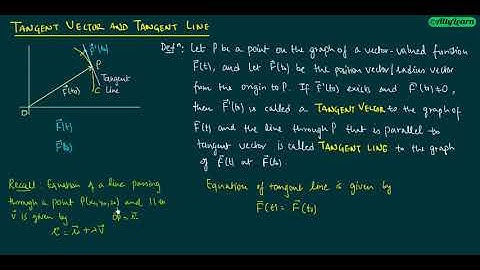 TANGENT VECTOR AND TANGENT LINE
©AllyLearn
F'(t0)
P
Tangent
Line
F(t0)
C
O
F(t)
F(t0)
Defn: Let P be a point on the graph of a vector-valued function
F(t), and let F(t0) be the position vector/radius vector
from the origin to P. If F'(t0) exists and F'(t0)≠0,
then F'(t0) is called a TANGENT VECTOR to the graph of
F(t) and the line through P that is parallel to
tangent vector is called TANGENT LINE to the graph
of F(t) at F(t0).
Recall: Equation of a line passing
through a point P(x0,y0,z0) and || to
v is given by
r = r + λv
Equation of tangent line is given by
F(t) = F(t0)